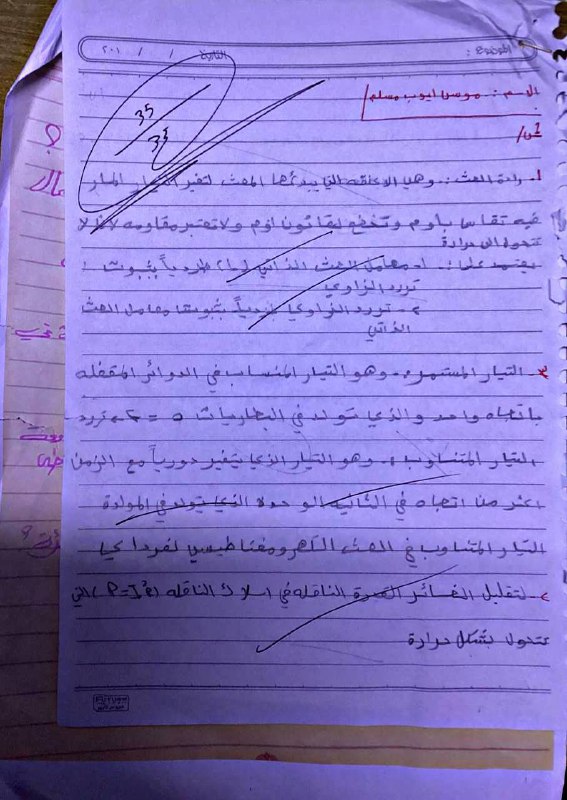 الموضوع :
التاريخ / / ٢٠١
الاسم : موسى ايوب مسلم
35
س١/
١- رادة الحث :- وهي الاعاقه التي يبديها المحث لتغير التيار المار
فيه تقاس بأوم وتخضع لقانون اوم ولا تعتبر مقاومه لانها لا
تتحول الى حرارة
يعتمد على :- ١- معامل الحث الذاتي (L) طردياً بثبوت
تردد الزاوي
٢- تردد الزاوي طردياً بثبوت معامل الحث
الذاتي
التيار المستمر :- وهو التيار المنساب في الدوائر المقفله
باتجاه واحد والذي تولد في البطاريات تردد
التيار المتناوب :- وهو التيار الذي يتغير دورياً مع الزمن
اكثر من اتجاه في الثانيه الوحدة الذي يتولد في المولدة
التيار المتناوب في الحث الكهرومغناطيسي لفرداي
- لتقليل الخسائر القدرة الناقله في اسلاك الناقله (P=I²R) التي
تتحول بشكل حرارة